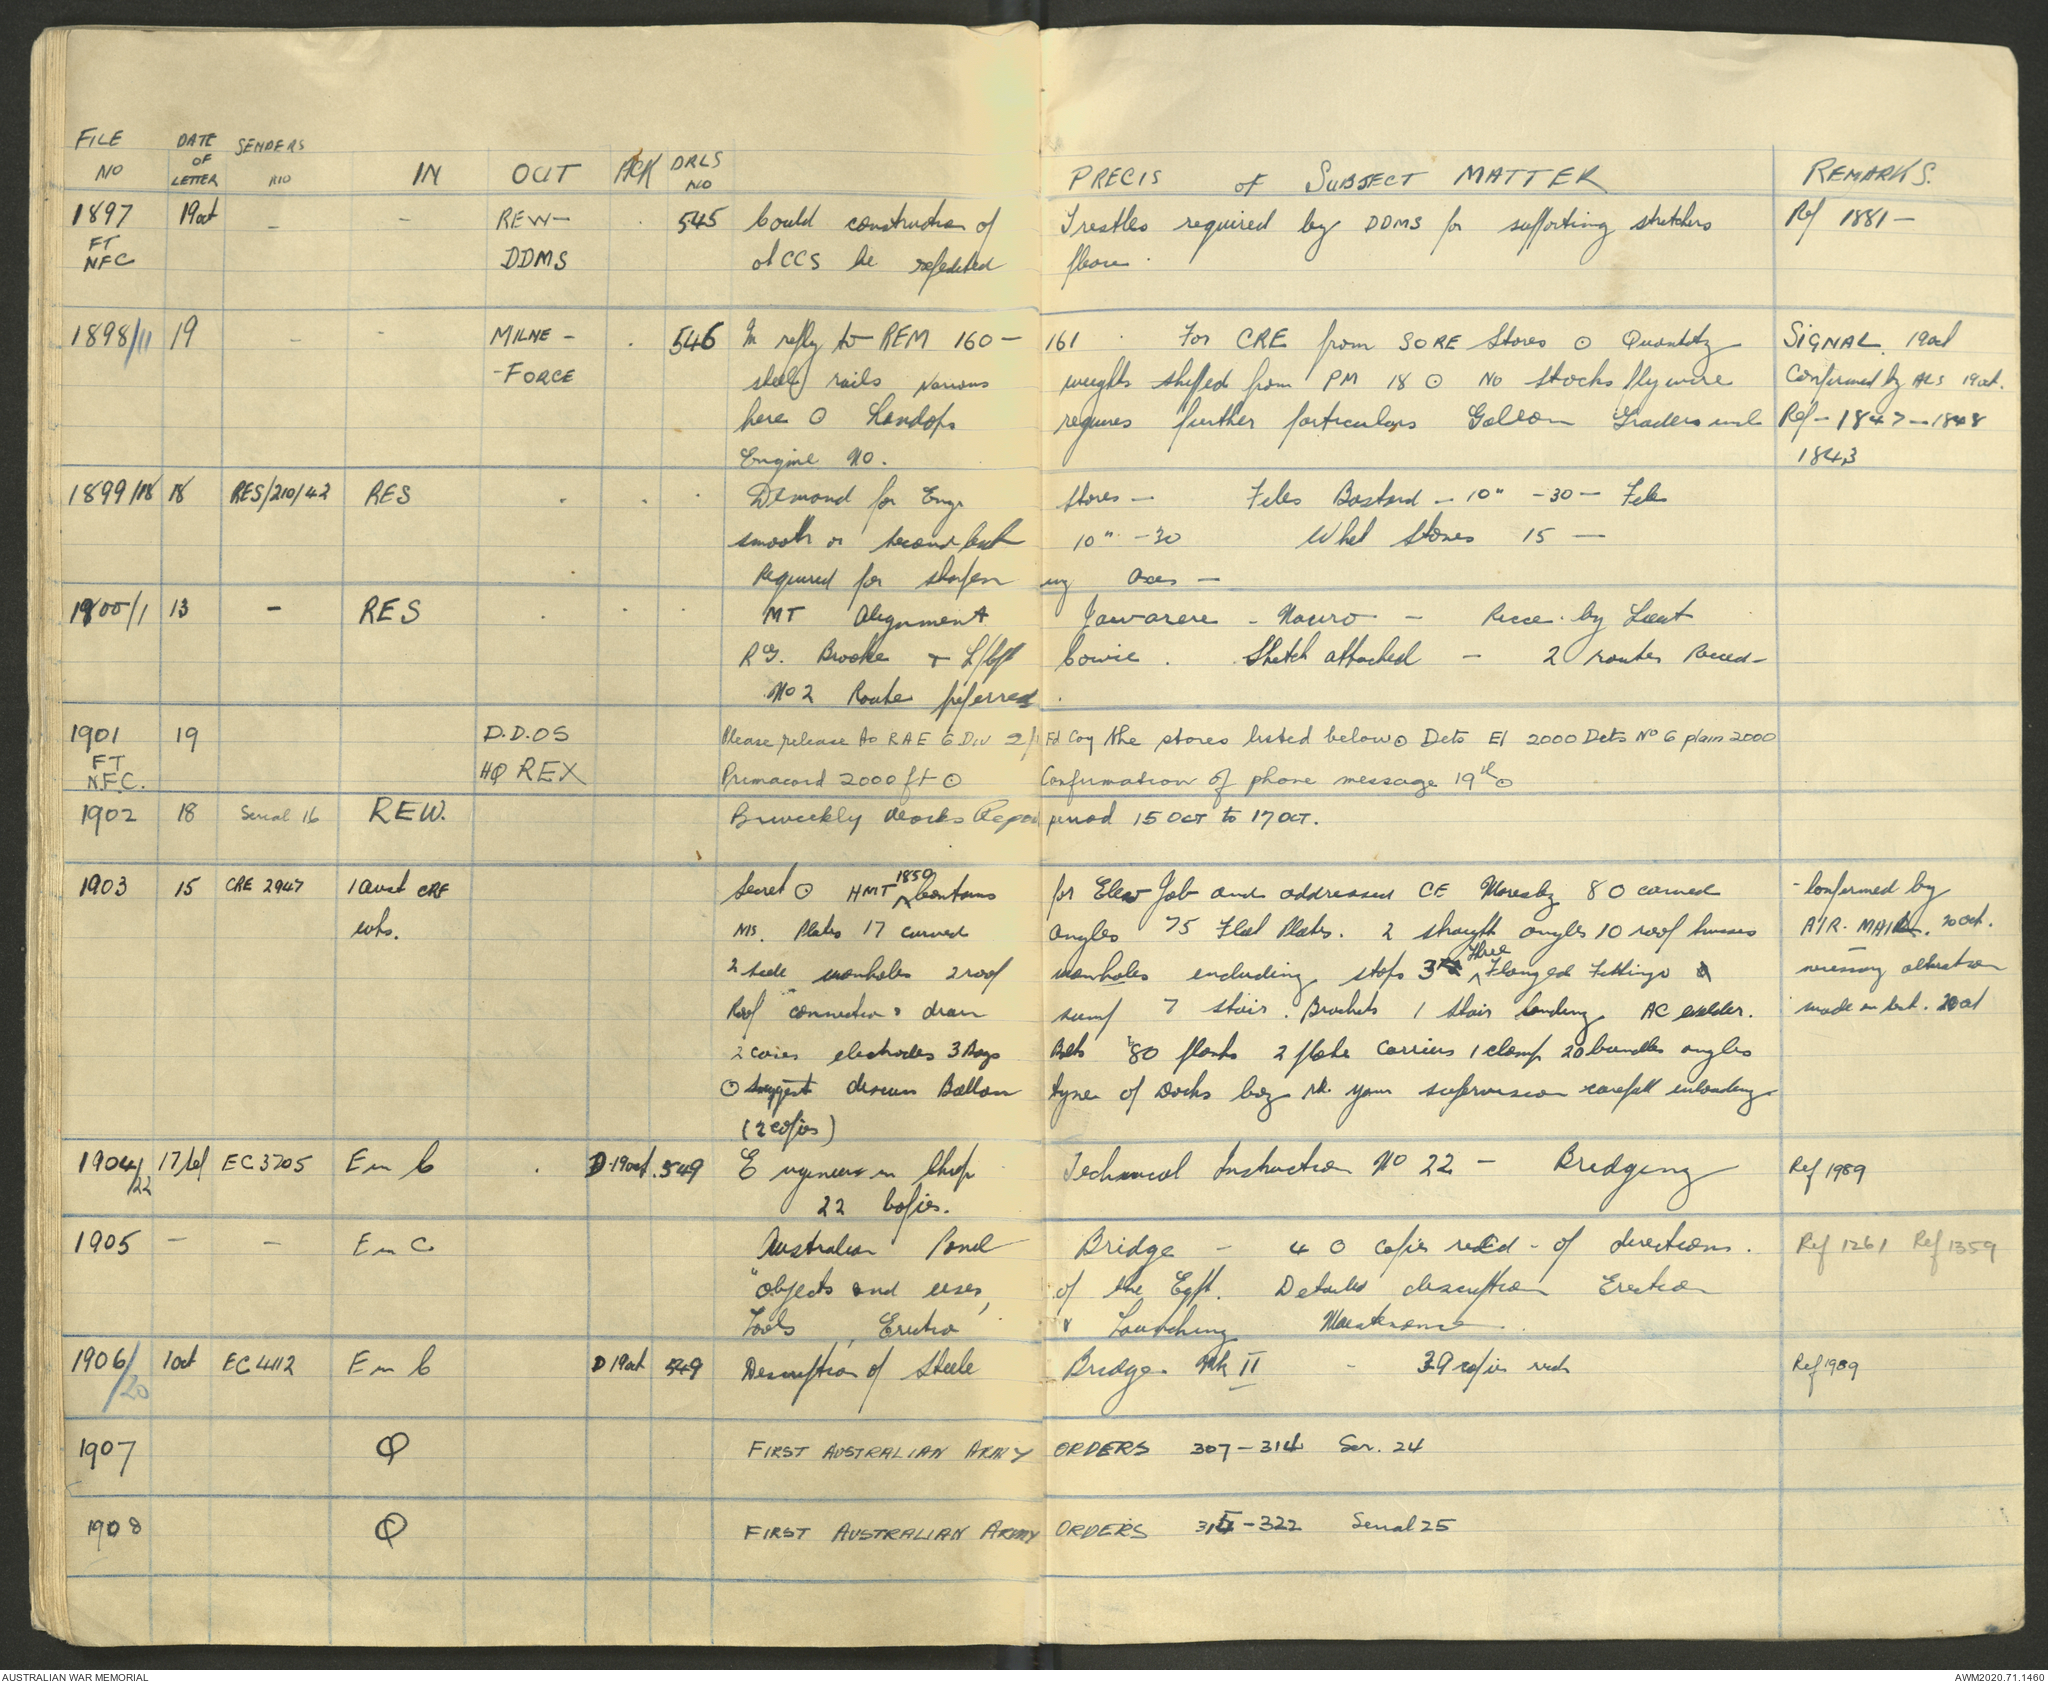 FILE NO | DATE OF LETTER | SENDERS NO | IN | OUT | ACK | DRLS NO | PRECIS of SUBJECT MATTER | REMARKS.
1897 19 Oct - - REW- 545 Could construction of Trestles required by DDMS for supporting stretchers Ref 1881-
FT NFC DDMS at CCS be expedited please.
1898/11 19 - - MILNE- 546 In reply to REM 160- 161 For CRE from SORE Stores ⊙ Quantity SIGNAL. 19 Oct
-FORCE steel rails various weights shipped from PM 18 ⊙ No stocks flywire Confirmed by ALS 19 Oct.
here ⊙ requires further particulars Galeon Graders incl Ref-1847-1848
Engine No. 1843
1899/18 18 RES/210/42 RES Demand for Engr Stores- Files Bastard - 10" -30- File
smooth or second cut 10" -30 Whet Stones 15-
Required for sharpen ing axes-
1900/1 13 - RES MT Alignment Jawarere - Nauro - Recce. by Lieut
R.G. Brooke & L/Cpl Cowie. Sketch attached - 2 routes Recced-
No 2 Route preferred.
1901 19 D.D.OS Please release to RAE 6 Div 2/ Fd Coy the stores listed below ⊙ Dets El 2000 Dets No 6 plain 2000
FT N.F.C. HQ REX Primacord 2000 ft ⊙ Confirmation of phone message 19th ⊙
1902 18 Serial 16 REW. Biweekly Works Report period 15 OCT to 17 OCT.
1903 15 CRE 2947 1 Aust CRE Secret ⊙ HMT 1859 contains for Elew Job and addressed CE Moresby 80 curved - Confirmed by
wks. MS. Plates 17 curved angles 75 Flat Plates. 2 straight angles 10 roof trusses AIR. MAIL. 20 Oct.
2 side manholes 2 roof manholes including steps Three Flanged Fittings necessary alteration
Roof connections drain sump 7 stair. Brackets 1 stair landing AC welder. made on text. 20 Oct
2 cases electrodes 3 Bags Bolts 80 planks 2 plate carriers 1 clamp 20 bundles angles
⊙ Suggest discuss Ballam of Docks your supervision careful unloading
(2 copies)
1904/22 17/ EC 3705 E in C D.19 Oct. 549 Engineer in Chief Technical Instruction No 22 - Bridging Ref 1989
22 Copies.
1905 - - E in C Australian Panel Bridge - 40 copies recd - of directions. Ref 1261 Ref 1359
"objects and uses, of the Eqpt. Detailed description Erection
Tools, Erection & Launching Maintenance.
1906/20 1 Oct EC 4112 E in C D 19 Oct 549 Description of Steele Bridge Mk II - 39 copies recd Ref 1989
1907 Q FIRST AUSTRALIAN ARMY ORDERS 307-314 Ser. 24
1908 Q FIRST AUSTRALIAN ARMY ORDERS 315-322 Serial 25
AUSTRALIAN WAR MEMORIAL
AWM2020.71.1460